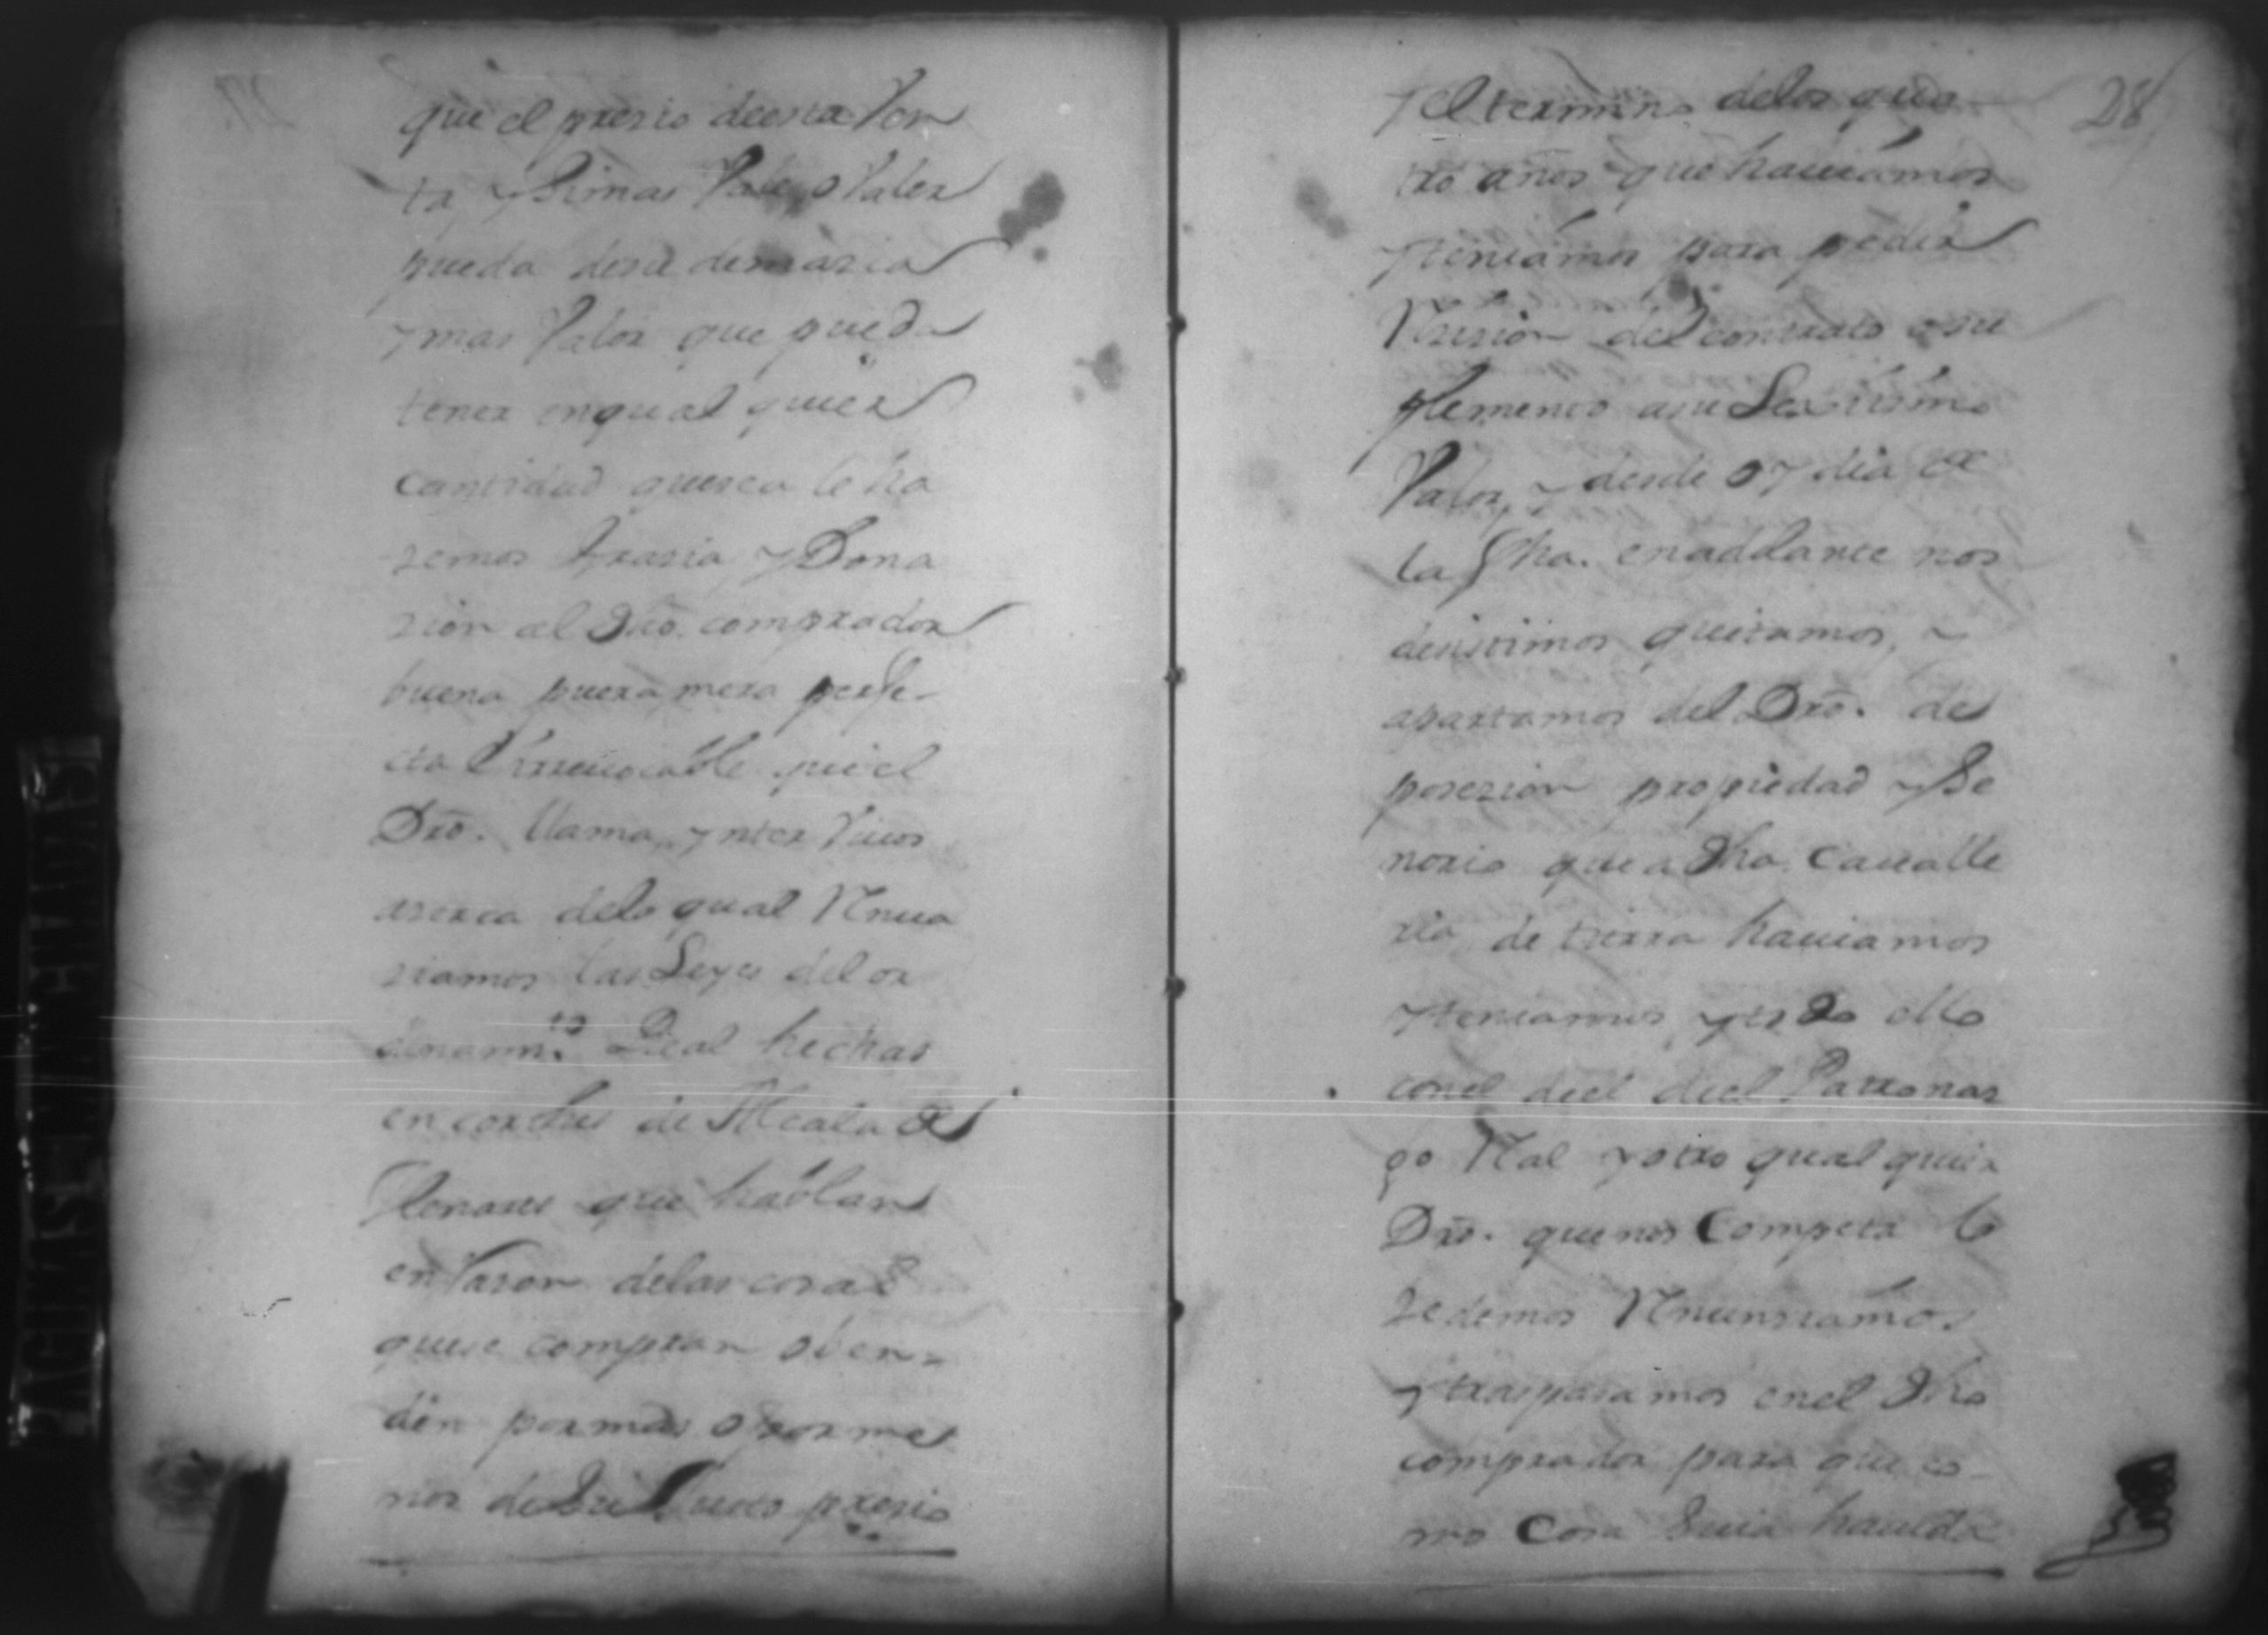 que el presio deesta Ven
ta y Simas Vale, o Valer
pueda desu demasia
y mas Valor que pueda
tener enqual quier
cantidad quesea le ha
zemos Grasia y Dona
zion al dho. comprador
buena puera mera perfe-
cta Yrrevocable quiel
Dro. llama, ynter Vivos
aserca delo qual Renun
ziamos las Leyes del or
denam.to Real hechas
en cortes de Alcala de
Henares que hablan
en Razon delas cosas
quese compran o ben-
den por mas o por me
nos desu Justo presio
y el termino delos qua
tro años que haviamos
y teniamos para pedir
Resision del contrato o su
plemento asu Lexitimo
Valor, y desde oy dia de
la fha. enaddlante nos
desistimos quitamos, y
apartamos del Dro. de
posezion propiedad y Se
norio que a dha. Cavalle
ria de tierra haviamos
y teniamos, y todo ello
conel deel deel Patronas
go Real y otro qual quier
Dro. quenos Competa lo
zedemos Renunsiamos
y traspasamos enel dho
comprador para que co-
mo Cosa Suia havida
28